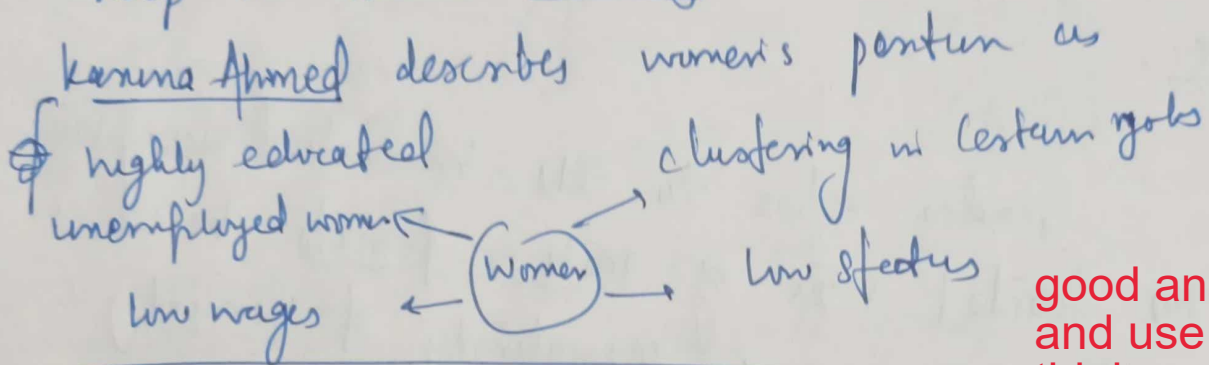 Karuna Ahmed describes women's position as
highly educated
unemployed women
clustering in certain jobs
women
low wages
low status
good an
and use